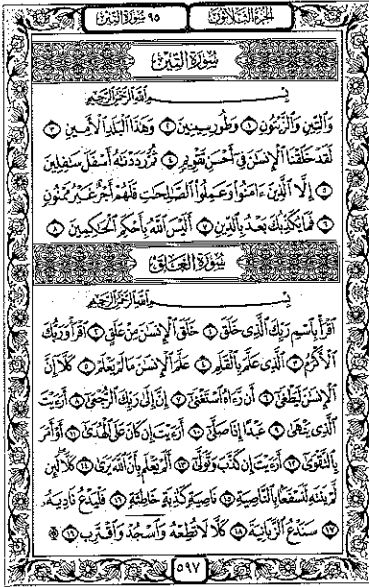 الجزء الثلاثون
٩٥ سورة التين
سورة التين
بسم الله الرحمن الرحيم
والتين والزيتون ١ وطور سينين ٢ وهذا البلد الأمين ٣
لقد خلقنا الإنسن في أحسن تقويم ٤ ثم رددنه أسفل سفلين
٥ إلا الذين ءامنوا وعملوا الصلحت فلهم أجر غير ممنون
٦ فما يكذبك بعد بالدين ٧ أليس الله بأحكم الحكمين ٨
سورة العلق
بسم الله الرحمن الرحيم
اقرأ باسم ربك الذي خلق ١ خلق الإنسن من علق ٢ اقرأ وربك
الأكرم ٣ الذي علم بالقلم ٤ علم الإنسن ما لم يعلم ٥ كلا إن
الإنسن ليطغى ٦ أن رءاه استغنى ٧ إن إلى ربك الرجعى ٨ أرءيت
الذي ينهى ٩ عبدا إذا صلى ١٠ أرءيت إن كان على الهدى ١١ أو أمر
بالتقوى ١٢ أرءيت إن كذب وتولى ١٣ ألم يعلم بأن الله يرى ١٤ كلا لئن
لم ينته لنسفعا بالناصية ١٥ ناصية كذبة خاطئة ١٦ فليدع ناديه
١٧ سندع الزبانية ١٨ كلا لا تطعه واسجد واقترب ۩ ١٩
٥٩٧